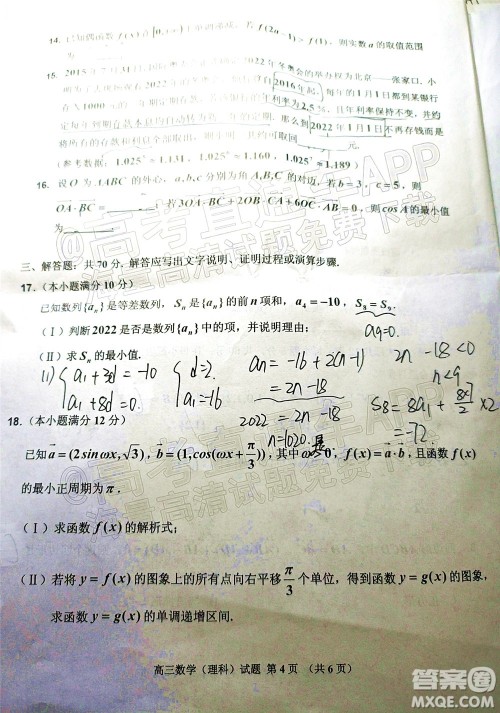 14. 已知偶函数 f(x) 在 [0,+∞) 单调 f(2a-1) > f(1), 则实数 a 的取值范围
为
15. 2015年7月31日 2022年冬奥会的举办权为北京——张家口.
2016年起, 每年1月1日都到某银行
存入1000 年利率为2.5% 且利率保持不变, 并
约定每年到期存款本息均自动转为 一年的定期. 那么到2022年1月1日不再存钱而是
将所有的存款和利息全部取出 元.
(参考数据: 1.025⁵ ≈ 1.131, 1.025⁶ ≈ 1.160, 1.025⁷ ≈ 1.189)
16. 设 O 为 ΔABC 的外心, a,b,c 分别为角 A,B,C 的对边, 若 b=3, c=5, 则
OA·BC = ; 若 3OA·BC+2OB·CA+6OC·AB=0, 则 cosA 的最小值
为
三、解答题: 共70分, 解答应写出文字说明、证明过程或演算步骤.
17. (本小题满分10分)
已知数列{aₙ}是等差数列, Sₙ是{aₙ}的前n项和, a₄=-10,
a₉=0.
(Ⅰ) 判断2022是否是数列{aₙ}中的项, 并说明理由;
(Ⅱ) 求Sₙ的最小值.
a₁+3d=-10
a₁+8d=0
d=2.
aₙ=-16+2(n-1)
=2n-18
2022=2n-18
n=1020. 是
2n-18<0
n<9
S₈=8a₁+8×7/2×2
=-72.
18. (本小题满分12分)
已知 a=(2sinωx,√3), b=(1,cos(ωx+π/3)), 其中 ω>0, 函数 f(x)=a·b, 且函数 f(x)
的最小正周期为π.
(Ⅰ) 求函数 f(x) 的解析式;
(Ⅱ) 若将 y=f(x) 的图象上的所有点向右平移 π/3 个单位, 得到函数 y=g(x) 的图象,
求函数 y=g(x) 的单调递增区间.
高三数学 (理科) 试题 第4页 (共6页)
高考直通车APP
海量高清试题免费下载
答案圈
MXQE.COM